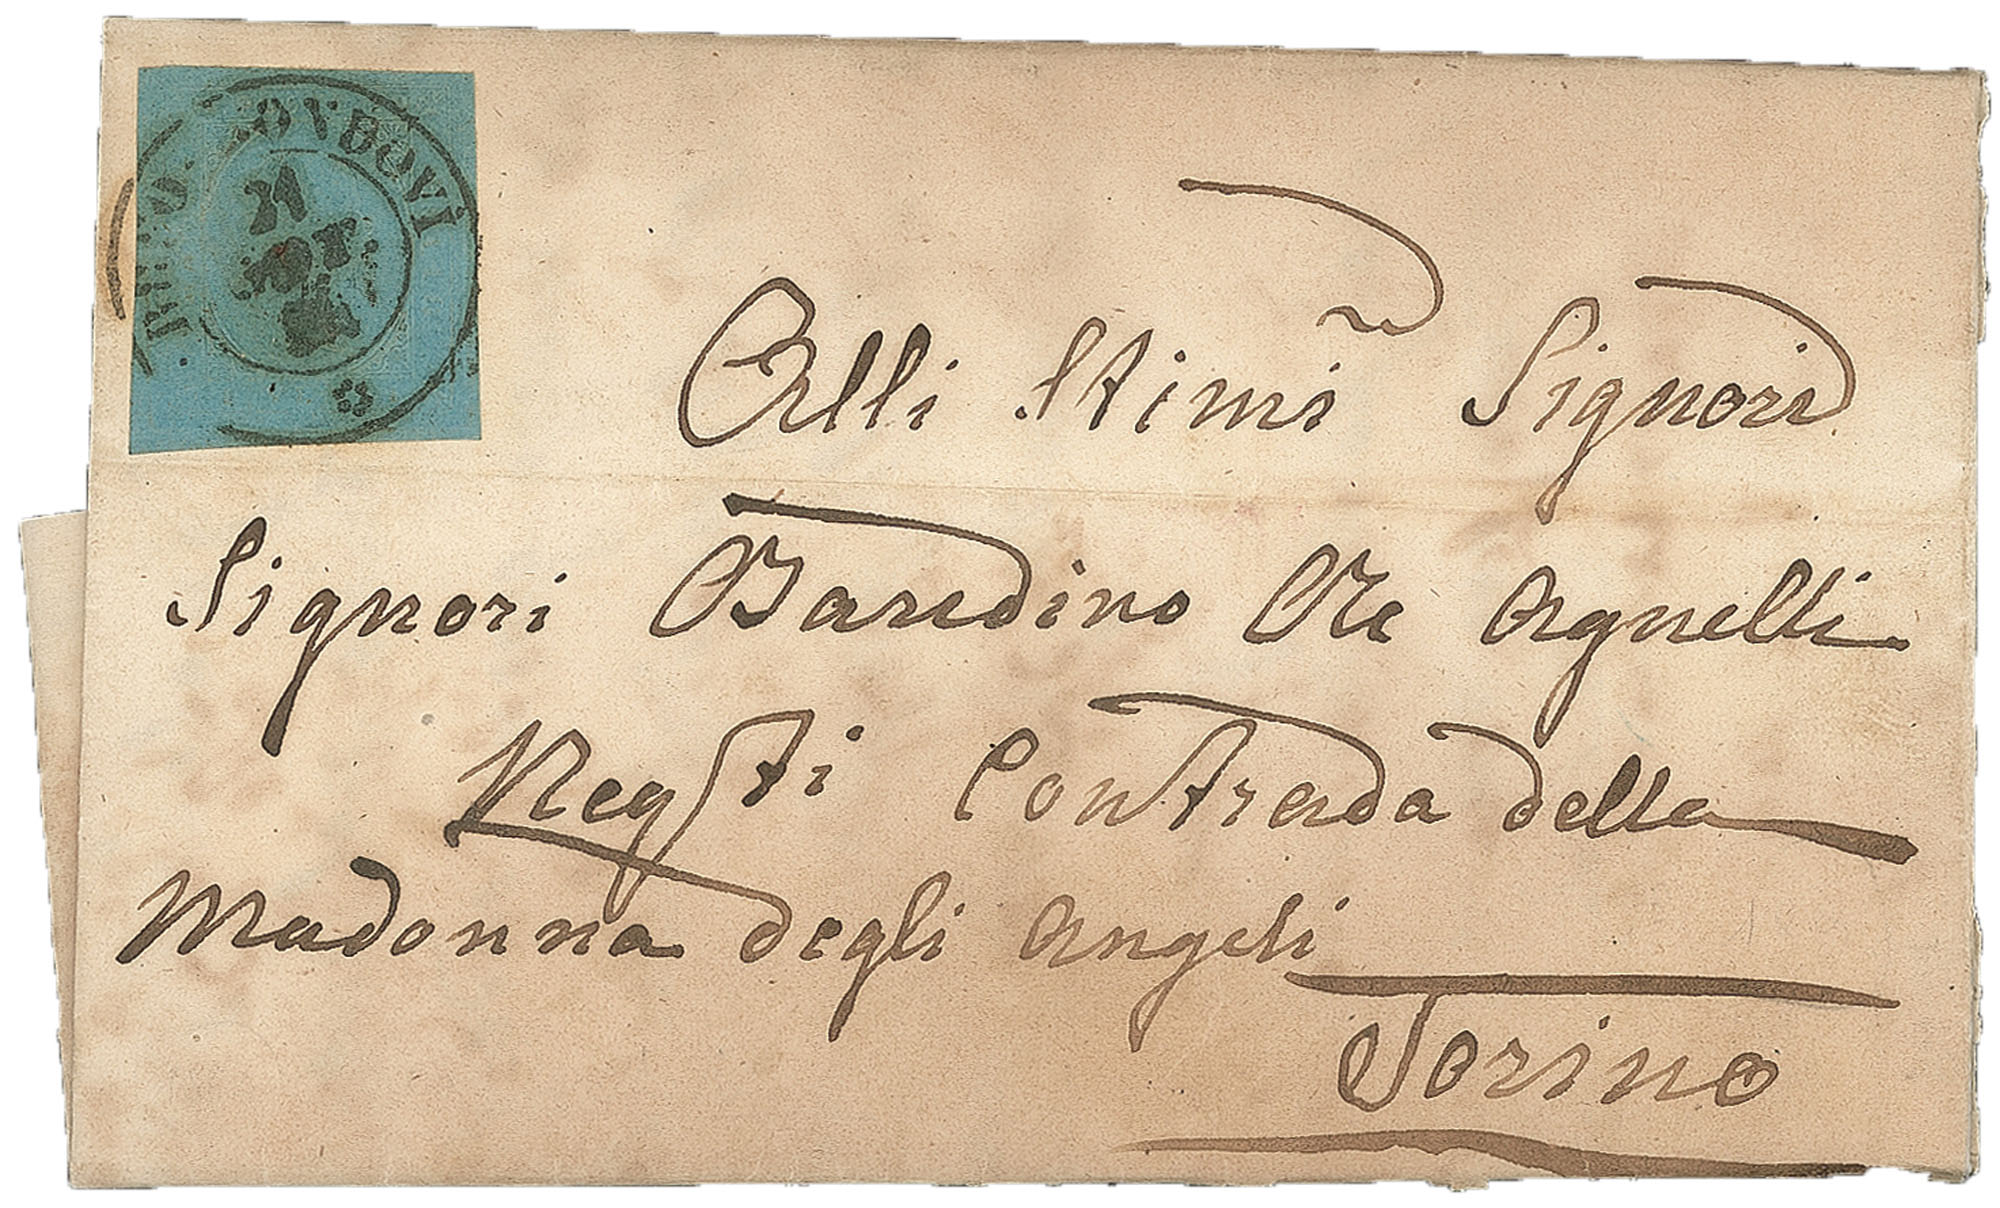 BREO. MONDOVI
Alli Stimi Signori
Signori Baredino Re Agnelli
Negti Contrada della
Madonna degli Angeli
Torino